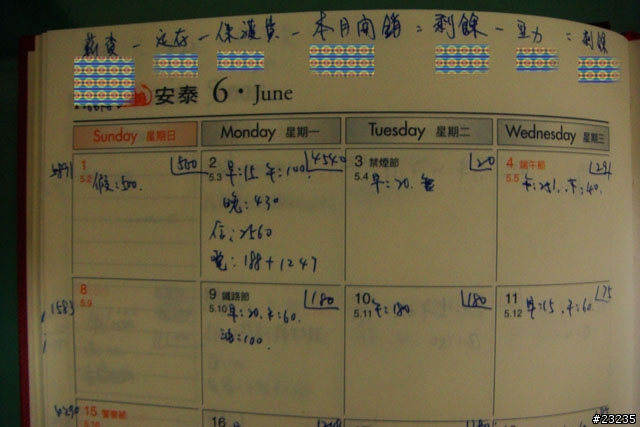 薪資 - 定存 - 保護費 - 本月開銷 = 剩餘 - 互力 = 剩餘
安泰 6・June
Sunday 星期日 Monday 星期一 Tuesday 星期二 Wednesday 星期三
1 500 2 4540 3 禁煙節 20 4 端午節 291
5.2 假:500. 5.3 早:15. 午:100. 5.4 早:20. 5.5 午:251. 下:40.
晚:430
信:2560
電:188+1247
8 9 鐵路節 180 10 180 11 75
5.9 5.10 早:20. 午:60. 5.11 午:180 5.12 早:15. 午:60.
油:100.
1583
4290 15 警察節 16
#23235